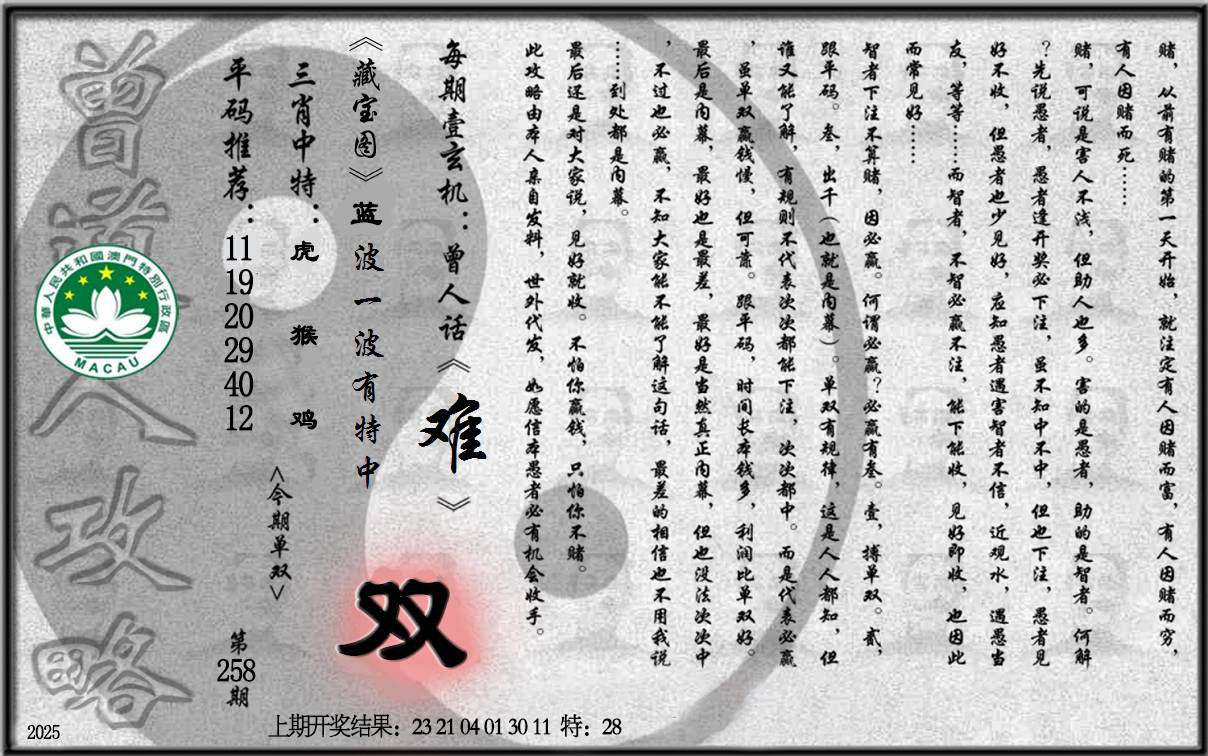 赌，从前有赌的第一天开始，就注定有人因赌而富，有人因赌而穷，
有人因赌而死……
赌，可说是害人不浅，但助人也多。害的是愚者，助的是智者。何解
？先说愚者，愚者逢开奖必下注，虽不知中不中，但也下注，愚者见
好不收，但愚者也少见好，应知愚者遇害智者不信，近观水，遇愚当
友，等等……而智者，不智必赢不注，能下能收，见好即收，也因此
而常见好……
智者下注不算赌，因必赢。何谓必赢？必赢有叁。壹，搏单双。贰，
跟平码。叁，出千（也就是内幕）。单双有规律，这是人人都知，但
谁又能了解，有规则不代表次次都能下注，次次都中。而是代表必赢
，虽单双赢钱慢，但可靠。跟平码，时间长本钱多，利润比单双好。
最后是内幕，最好也是最差，最好是当然真正内幕，但也没法次次中
，不过也必赢，不知大家能不能了解这句话，最差的相信也不用我说
……到处都是内幕。
最后还是对大家说，见好就收。不怕你赢钱，只怕你不赌。
此攻略由本人亲自发料，世外代发，如愿信本愚者必有机会收手。
每期壹玄机：曾人话《难》
《藏宝图》蓝波一波有特中
双
三肖中特：虎 猴 鸡
<今期单双>
平码推荐：11 19 20 29 40 12
第258期
曾道人攻略
中華人民共和國澳門特別行政區
MACAU
2025
上期开奖结果：23 21 04 01 30 11 特：28